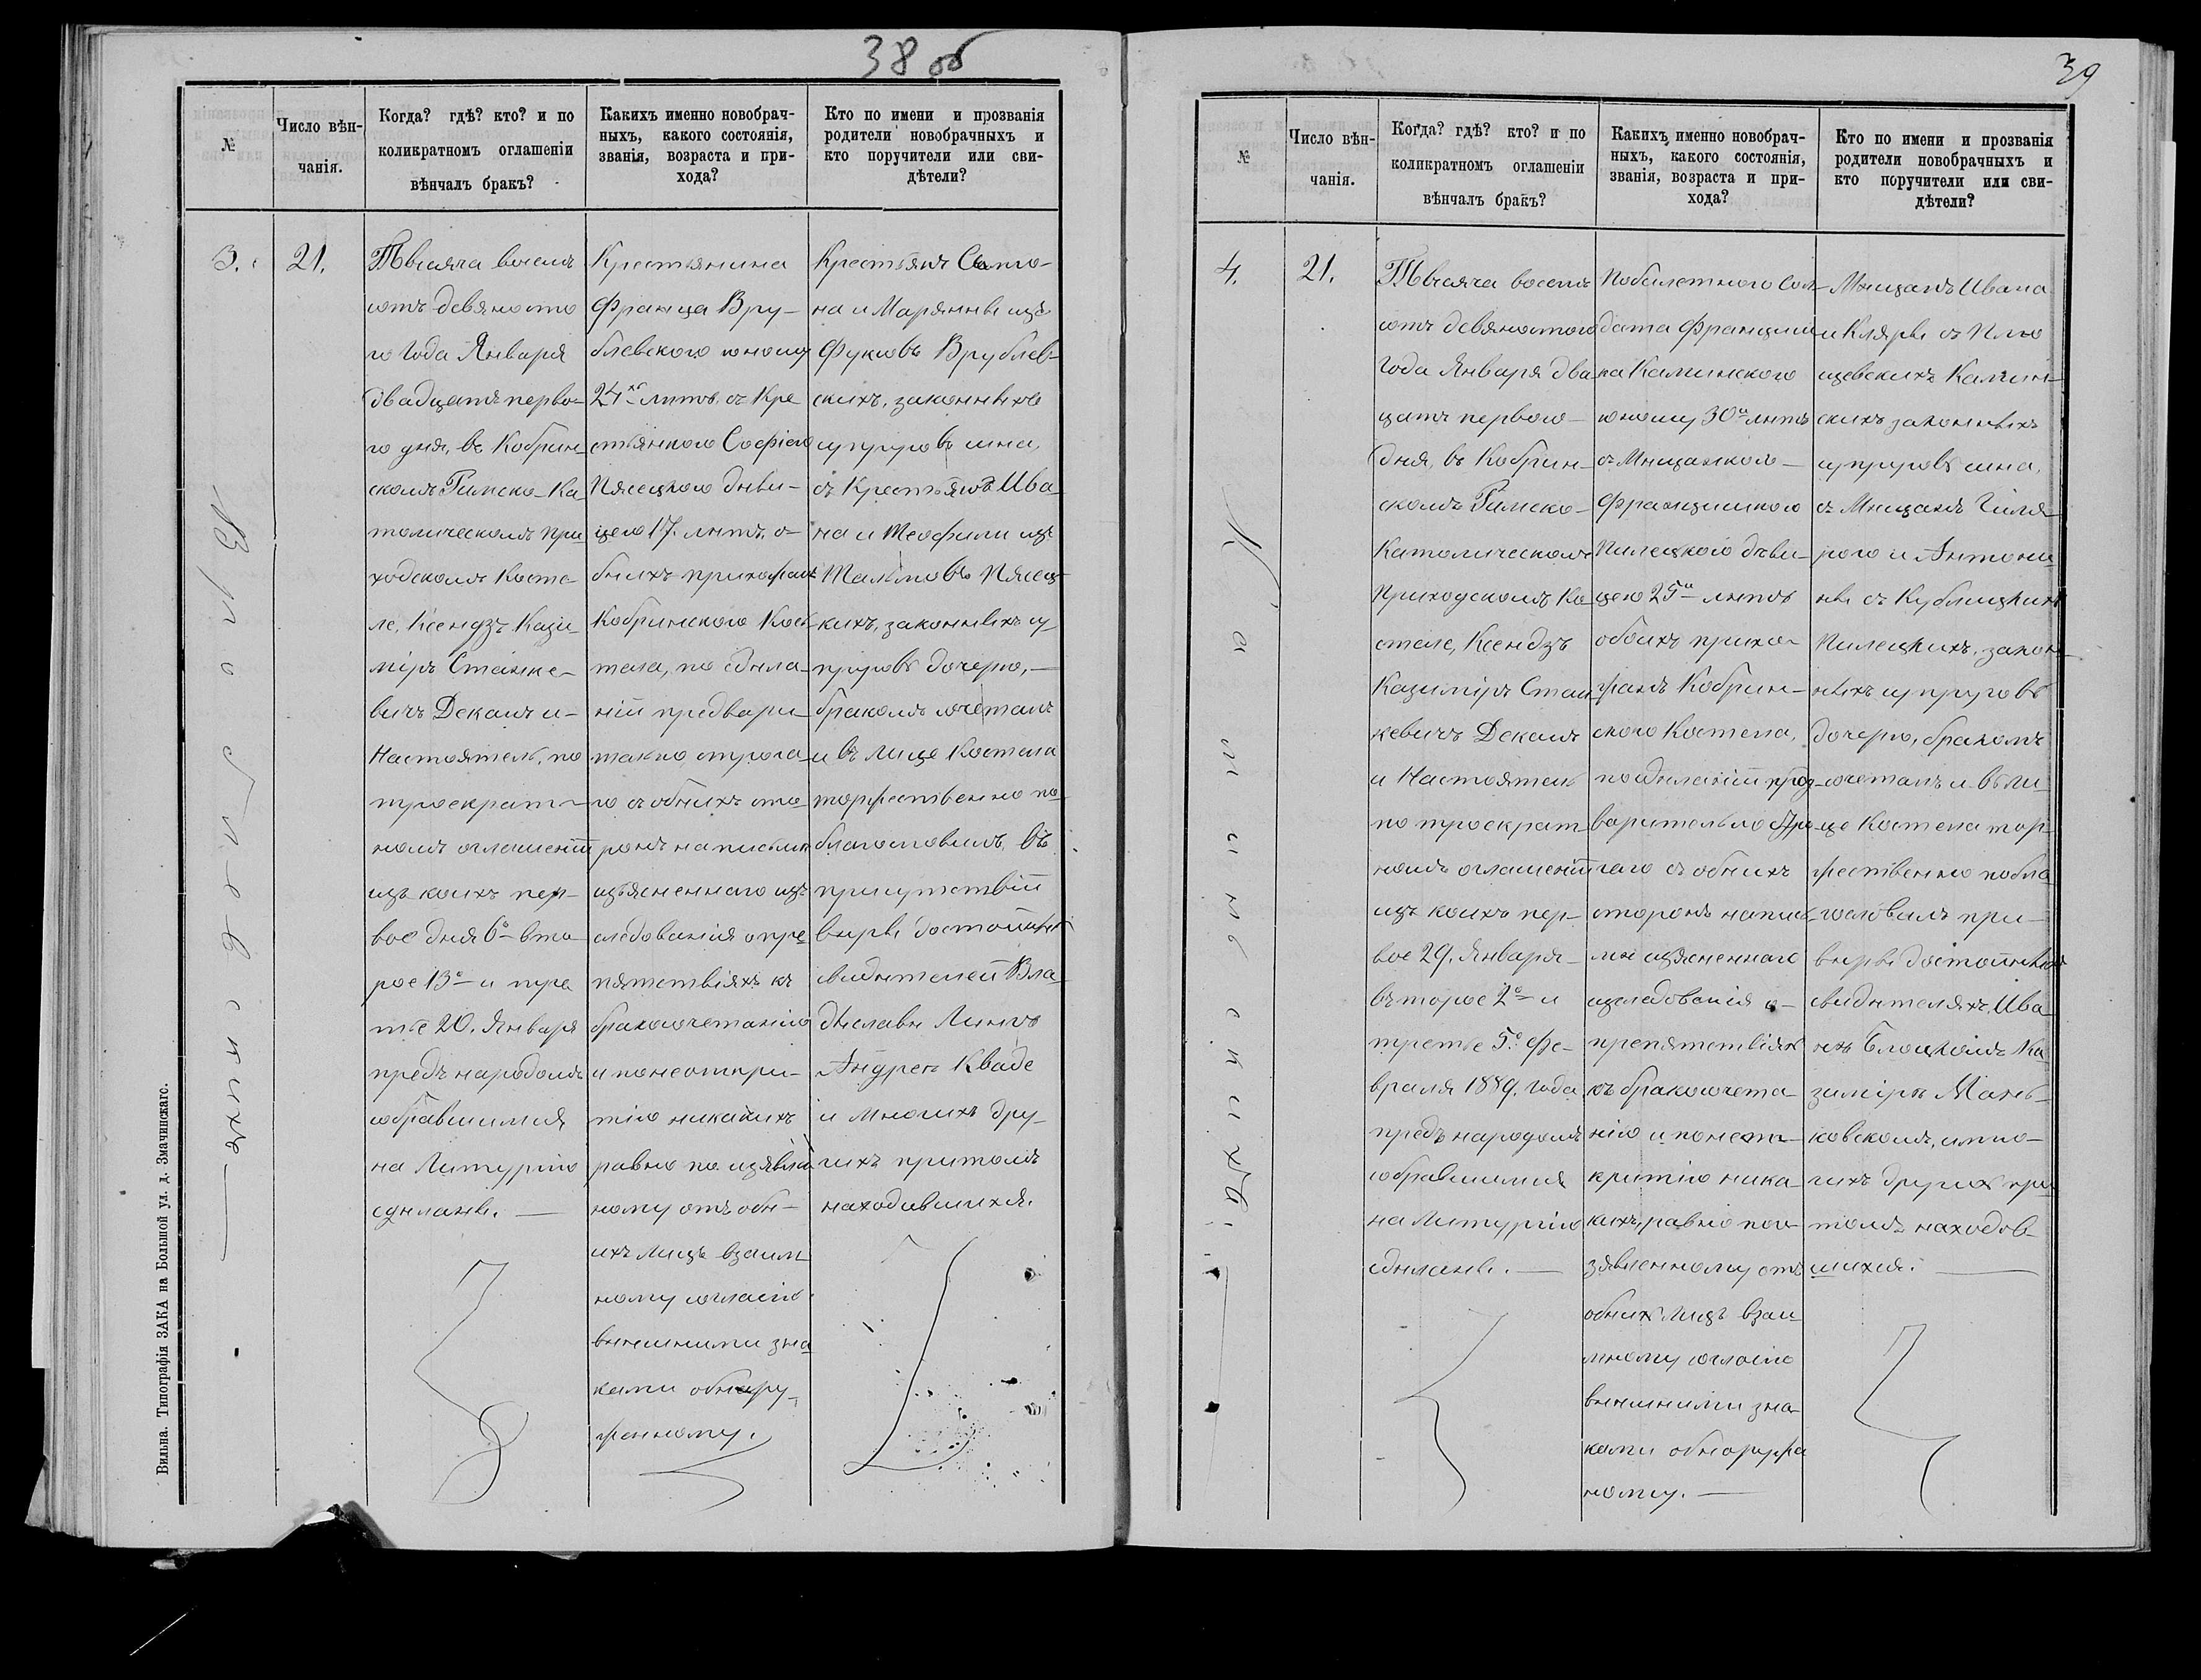 38 об
№
Число вѣн-
чанія.
Когда? гдѣ? кто? и по
коликратномъ оглашеніи
вѣнчалъ бракъ?
Какихъ именно новобрач-
ныхъ, какого состоянія,
званія, возраста и при-
хода?
Кто по имени и прозванія
родители новобрачныхъ и
кто поручители или сви-
дѣтели?
3.
Врублевскихъ
21.
Тысяча восемь
сотъ девяносто
го года Января
двадцать перво-
го дня, въ Кобрин-
скомъ Римско-Ка
толическомъ при
ходскомъ косте-
ле, Ксендзъ Кази-
міръ Станке-
вичъ Деканъ и-
Настоятель, по
троекрат-
номъ оглашеніи
изъ коихъ пер-
вое дня 6º вто
рое 13º и тре
тье 20. Января
предъ народомъ
собравшимся
на Литургію
сдѣланы.
Крестьянина
Франца Вру-
блевского юношу
24хъ лѣтъ, съ Кре
стьянкою Софіею
Пясецкою дѣви-
цею 17. лѣтъ, о-
бѣихъ прихожан
Кобринского Кос
тела, по сдѣла-
ніи предвари
тельно строга
го съ обѣихъ сто
ронъ на письмѣ
изъясненнаго изъ
следованія о пре
пятствіяхъ къ
бракосочетанію
и по неоткры-
тію никакихъ
равно по изъявлен
ному отъ обѣ-
ихъ лицъ взаим
ному согласію
внешними зна
ками обнару-
женному.
Крестьянъ Санто-
на и Марянны изъ
Фуковъ Врублев-
скихъ, законныхъ
супруговъ сына,
съ Крестьянъ Ива
на и Теофили изъ
Тальмовъ Пясец
кихъ, законныхъ су
пруговъ дочерью,
бракомъ сочеталъ
и въ лице Костела
торжественно по
благословилъ, въ
присутствіи
вѣры достойныхъ
свидѣтелей Вла
дислава Линго
Андрея Кваде
и многихъ дру-
гихъ притомъ
находившихся.
Вильна. Типографія ЗАКА на Большой ул. д. Змачинскаго.
39
№
Число вѣн-
чанія.
Когда? гдѣ? кто? и по
коликратномъ оглашеніи
вѣнчалъ бракъ?
Какихъ именно новобрач-
ныхъ, какого состоянія,
званія, возраста и при-
хода?
Кто по имени и прозванія
родители новобрачныхъ и
кто поручители или сви-
дѣтели?
4.
Каминскихъ
21.
Тысяча восемь
сотъ девяностого
года Января два
цать первого
дня, въ Кобрин-
скомъ Римско-
Католическомъ
Приходскомъ Ко
стеле, Ксендзъ
Казиміръ Стан
кевичъ Деканъ
и Настоятель
по троекрат
номъ оглашеніи
изъ коихъ пер-
вое 29. Января
въторое 2º и
третье 5º Фе-
враля 1889. года
предъ народомъ
собравшимся
на Литургію
сдѣланы.
Побилетного Сол
дата Францишк
ка Каминского
юношу 30и лѣтъ
съ Мѣщанкою
Францишкою
Пилецкою дѣви-
цею 25и лѣтъ
обоихъ прихо-
жанъ Кобрин-
ского Костела,
по сдѣланіи пред
варительно стро
гаго съ обѣихъ
сторонъ напись
мѣ изясненнаго
изследованія о
препятствіяхъ
къ бракосочета
нію и по неот-
крытію ника-
кихъ, равно по и
зявленному отъ
обѣихъ лицъ взаи
мному согласію
внешними зна-
ками обнаруже
ному.
Мѣщанъ Ивана
и Клары съ Плю
щевскихъ Камин-
скихъ законныхъ
супруговъ сына,
съ Мѣщанъ Гиля
рого и Антони
ны съ Кублицкихъ
Пилецкихъ, закон
ныхъ супруговъ
дочерью, бракомъ
сочеталъ и въ ли
це Костела тор-
жественно побла
гословилъ при
вѣры достойныхъ
свидѣтеляхъ, Ива
нѣ Блоцкомъ Ка
зимірѣ Мань-
ковскомъ, и мно-
гихъ другихъ при
томъ находов-
шихся.